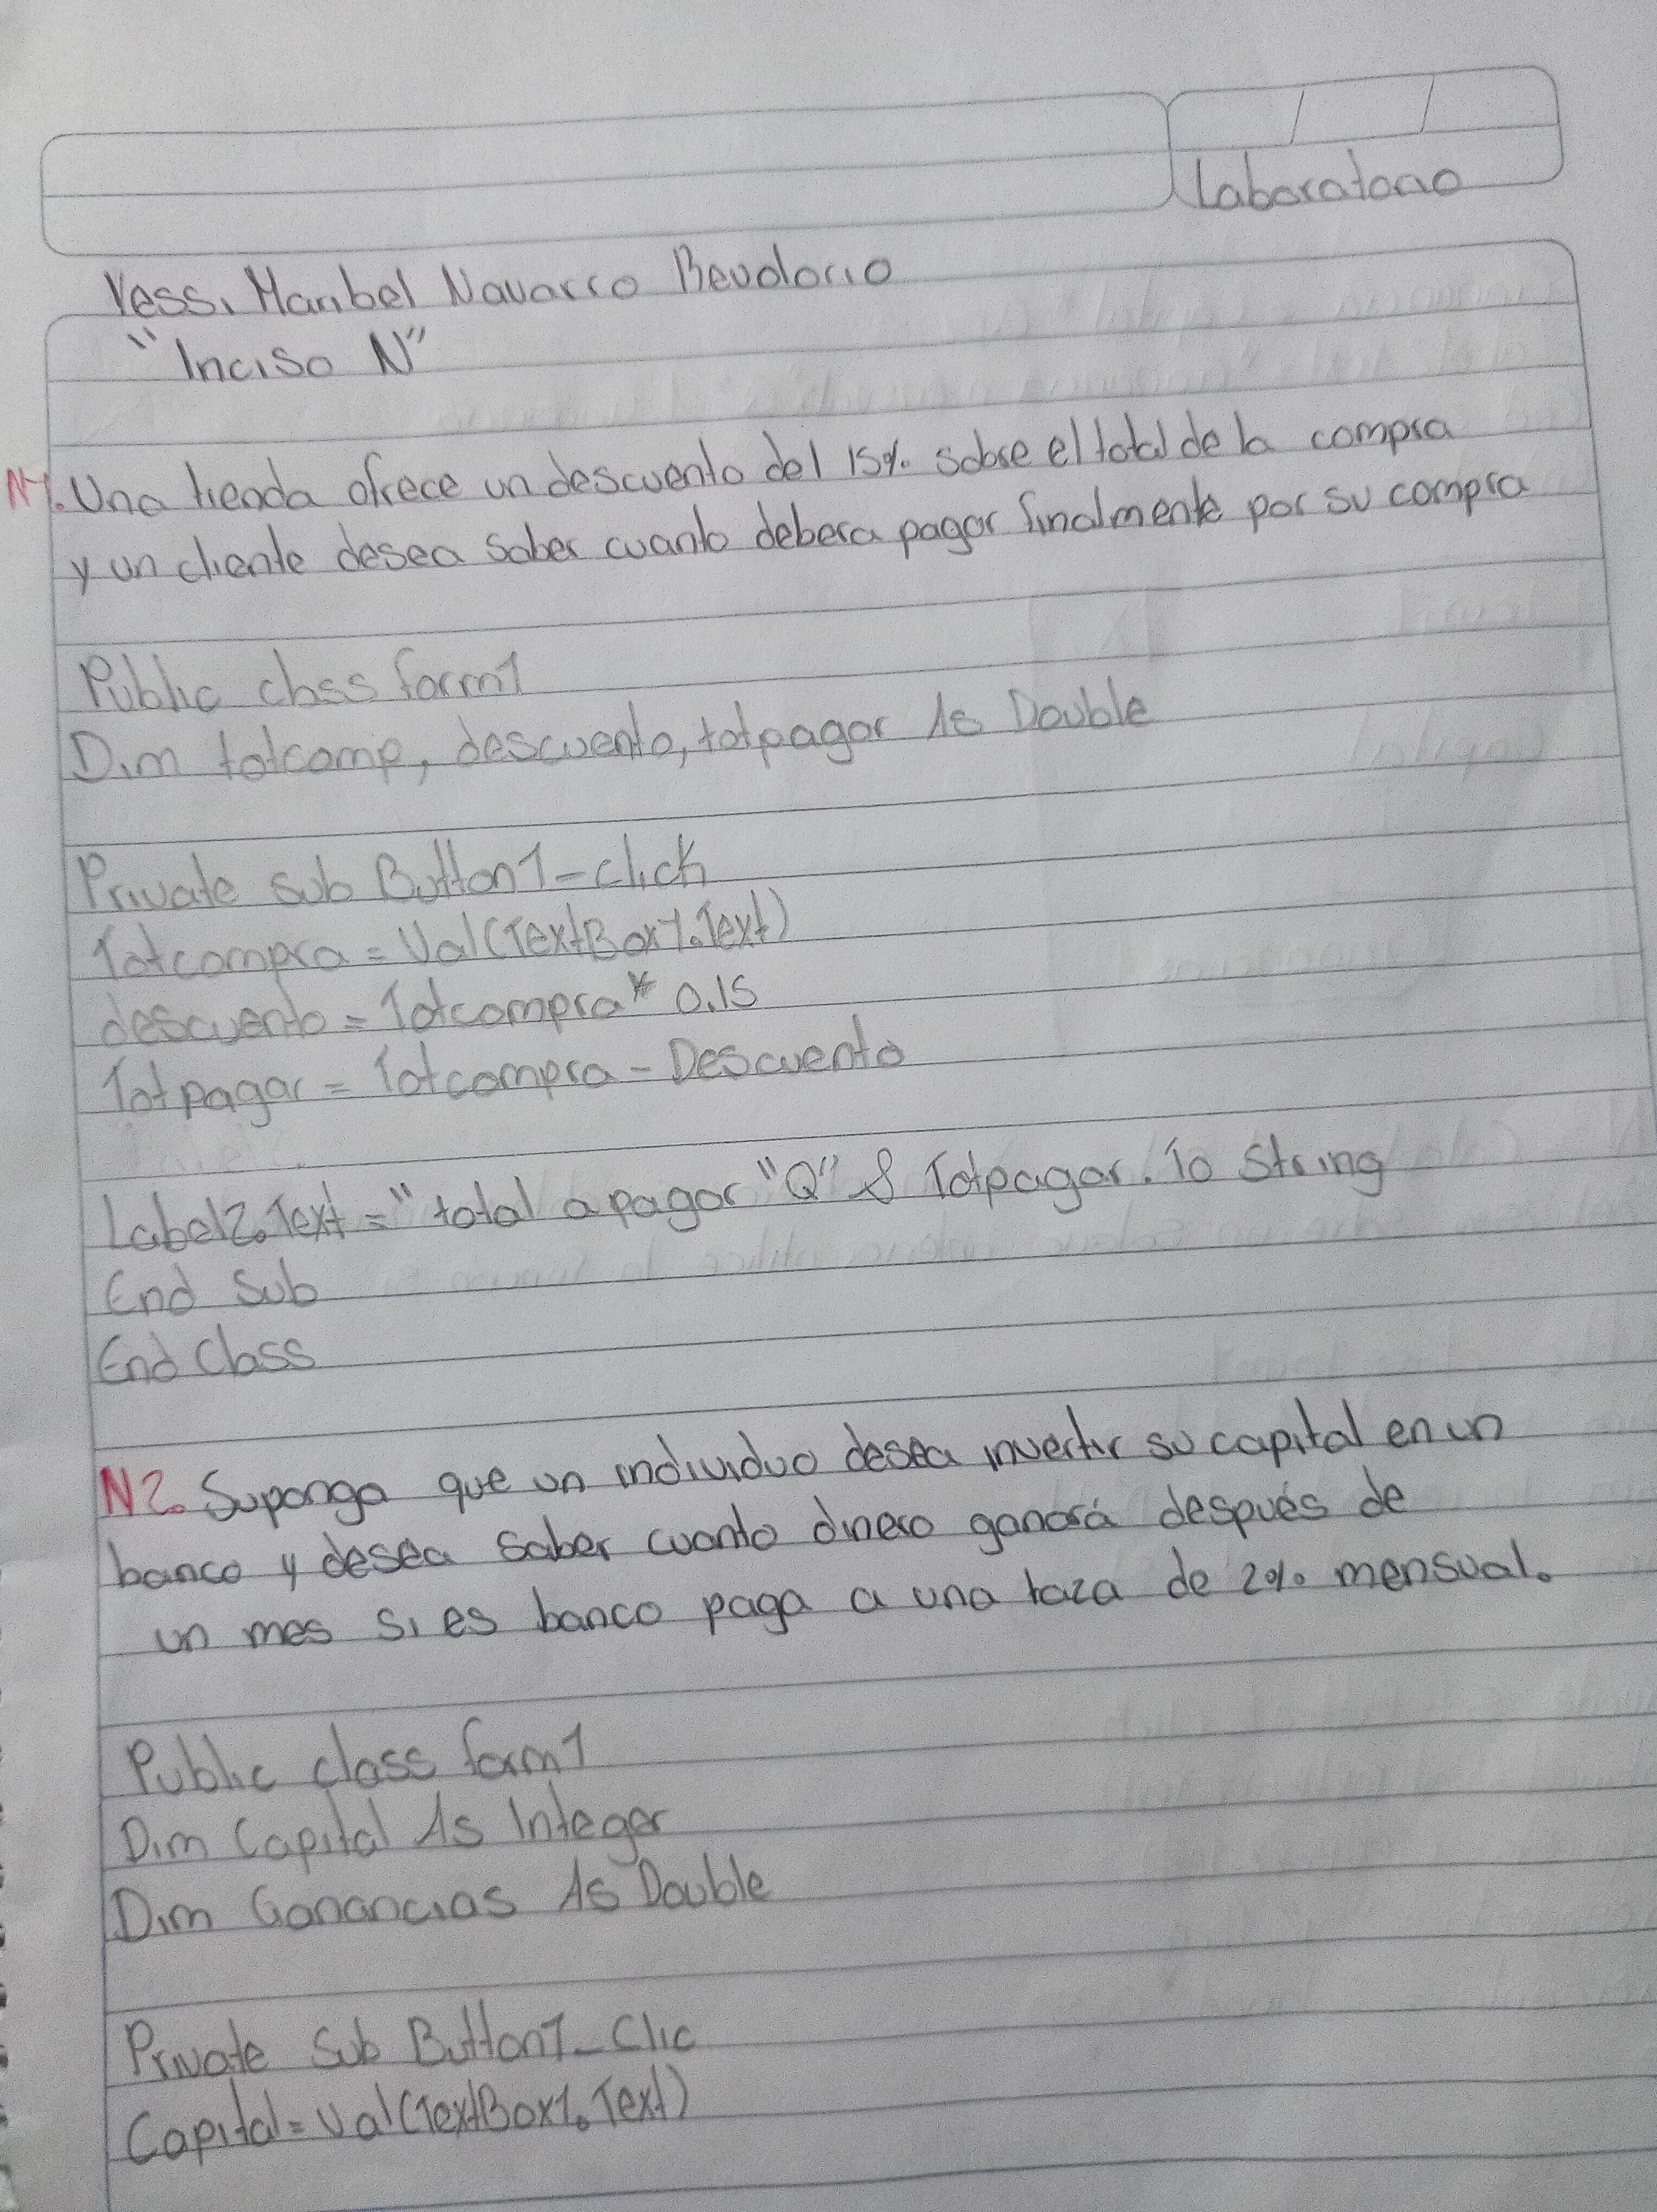 Laboratorio
Yessi Maribel Navarro Beudorio
"Inciso N"
N1. Una tienda ofrece un descuento del 15% sobre el total de la compra
y un cliente desea saber cuanto debera pagar finalmente por su compra
Public class form1
Dim totcomp, descuento, totpagar As Double
Private sub Button1-click
Totcompra = Val(TextBox1.Text)
descuento = Totcompra * 0.15
Totpagar = Totcompra - Descuento
Label2.Text = "total a pagar "Q" & Totpagar. To String
End Sub
End Class
N2. Suponga que un individuo desea invertir su capital en un
banco y desea saber cuanto dinero ganará después de
un mes si es banco paga a una taza de 2% mensual.
Public class form1
Dim Capital As Integer
Dim Ganancias As Double
Private Sub Button1_Clic
Capital = Val(TextBox1.Text)